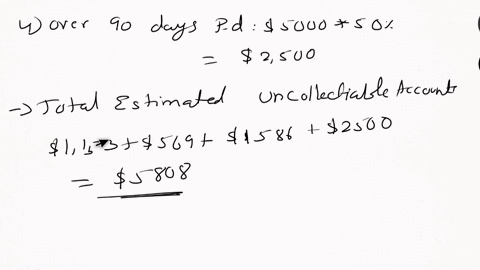 4) over 90 days P.d : $5000 * 50%
= $2,500
→ Total Estimated Uncollectiable Accounts
$1,153 + $569 + $1586 + $2500
= $5808